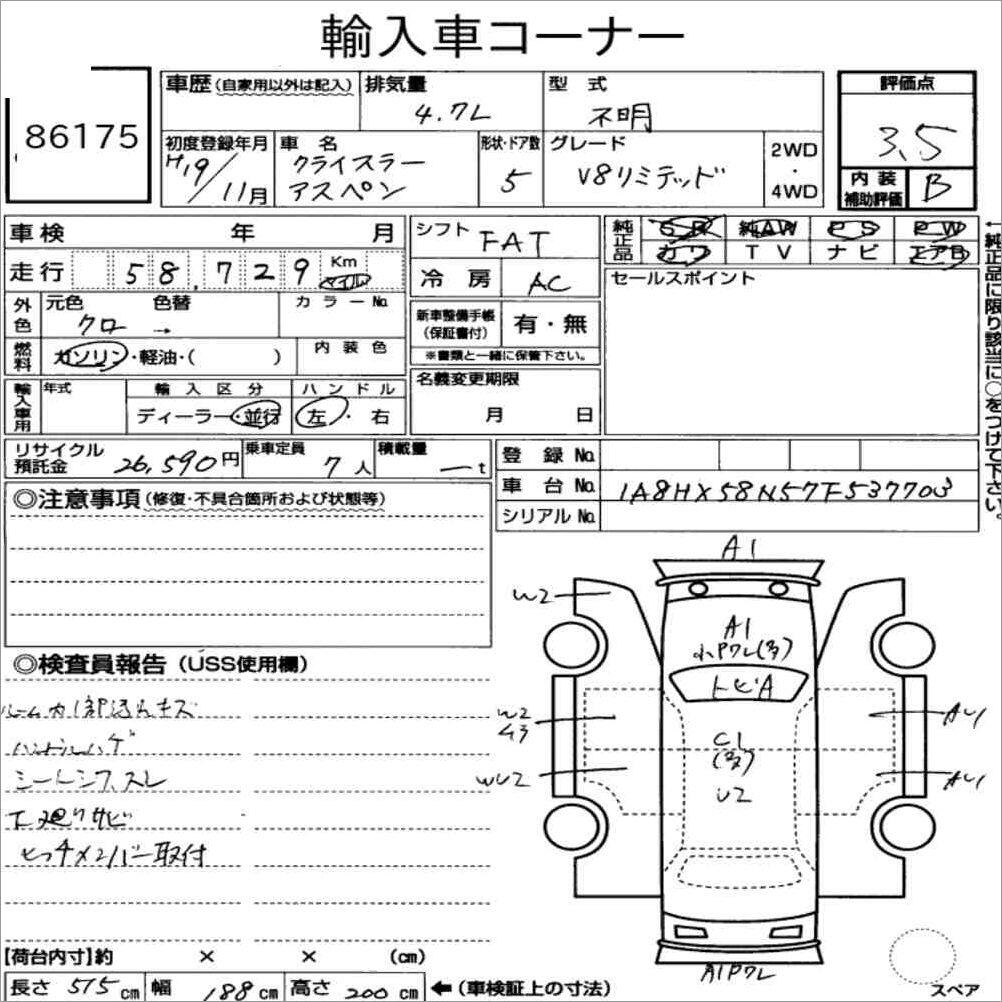 輸入車コーナー
86175
車歴(自家用以外は記入) 排気量 4.7L 型式 不明
初度登録年月 H19/11月 車名 クライスラー アスペン 形状・ドア数 5 グレード V8リミテッド 2WD・4WD
評価点 3.5
内装補助評価 B
車検 年 月
走行 58,729 Km マイル
外色 元色 クロ 色替 → カラーNo.
燃料 ガソリン・軽油・( ) 内装色
輸入車用 年式 輸入区分 ディーラー・並行 ハンドル 左・右
シフト FAT
冷房 AC
新車整備手帳(保証書付) 有・無
※書類と一緒に保管下さい。
名義変更期限 月 日
純正品 SR 純AW PS PW
カワ TV ナビ エアB
セールスポイント
←純正品に限り該当に○をつけて下さい。
リサイクル預託金 26,590円 乗車定員 7人 積載量 ーt
登録No.
車台No. 1A8HX58N57F537703
シリアルNo.
◎注意事項(修復・不具合箇所および状態等)
◎検査員報告(USS使用欄)
ルーム内1部込みキズ
ハンドルハゲ
シートシワ、スレ
下廻りサビ
ヒッチメンバー取付
A1
W2
A1
小Pワレ(多)
トビA
W2
C1
(多)
U2
WU2
AU1
AU1
A1Pワレ
【荷台内寸】約 × × (cm)
長さ 515cm 幅 188cm 高さ 200cm ←(車検証上の寸法)
スペア